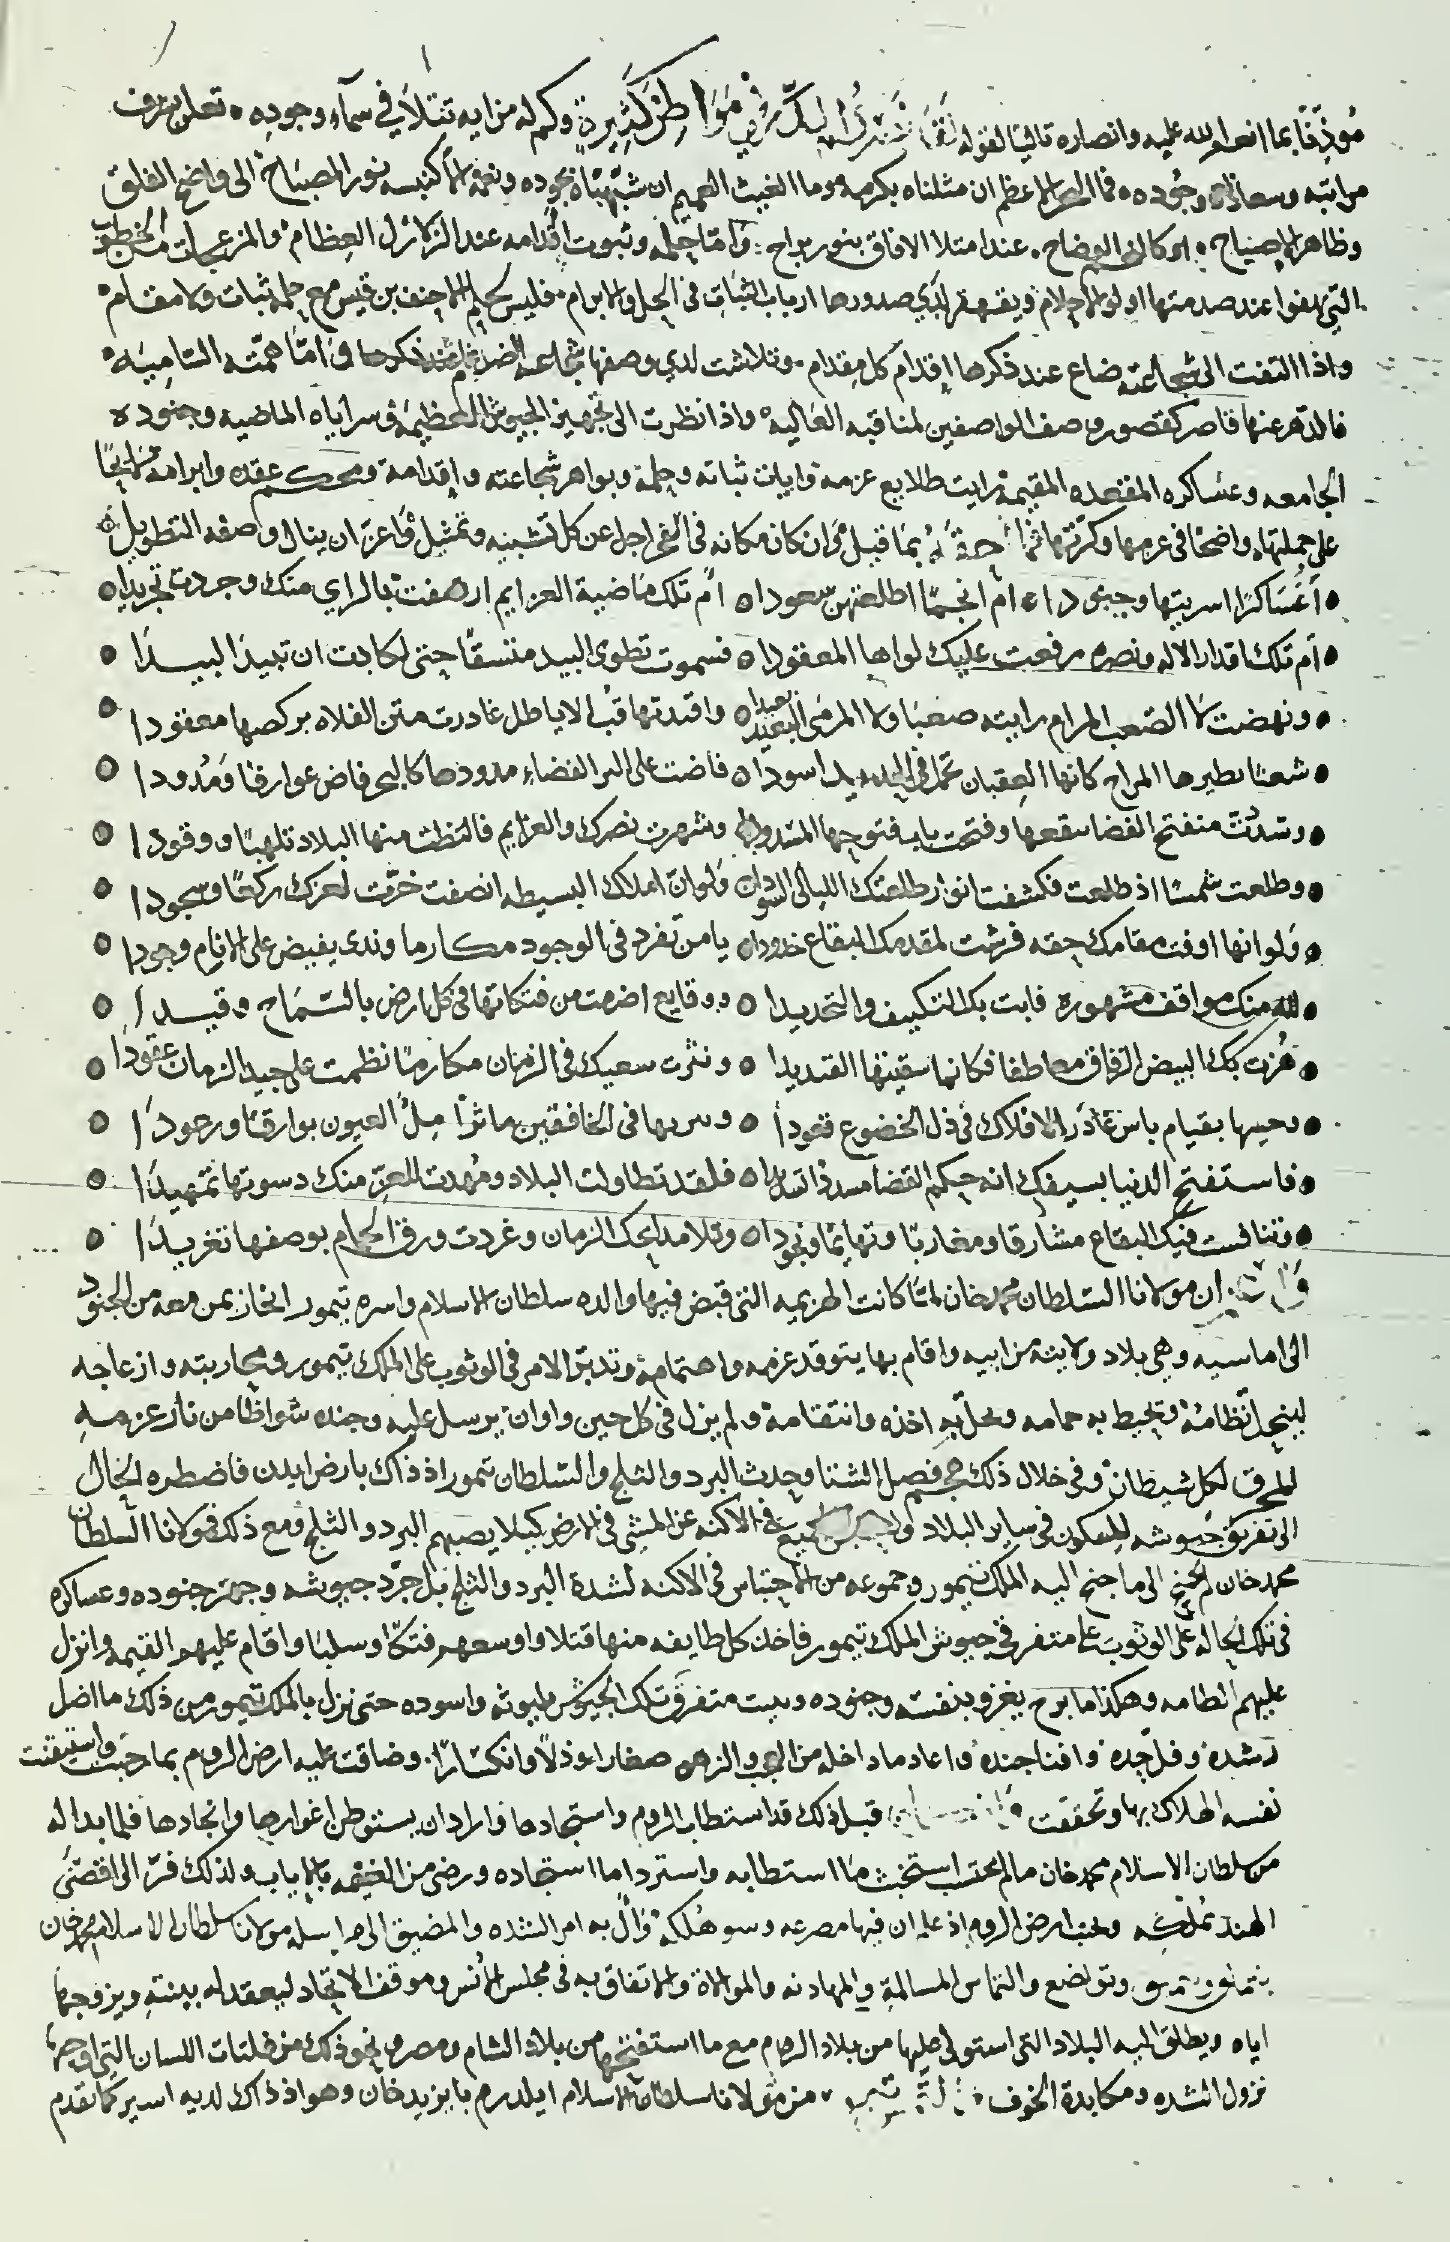 مُوذِنًا بما انعم الله عليه وانصاره تاليًا لقوله لَقَدْ نَصَرَكُمُ اللهُ فِي مَوَاطِنَ كَثِيرَةٍ وكم له من ايه تتلا في سمآء وجوده • تعلن بعرف
مراتبه وجوده • فما البحر الاعظم ان مثلناه بكرمه وما الغيث العميم ان شبهناه بجوده نور المصباح الى واضح الفلق
وظاهر الاصباح • عند امتلا الافاق بنور براح • وَامّا حلمه وثبوت اقدامه عند الزلازل العظام • والمزعجات من الخطوب
التي عند صدمتها اولو الاحلام • صدورها ارباب الثبات في الحل والابرام • فليس كحلم الاحنف بن قيس مع حلمه ثبات ولا مقام •
واذا التفت الى شجاعته ضاع عند ذكرها اقدام كل مقدام • وتلاشت لدي وصفها شجاعه الضرغام وامّا همّته السّاميه •
فالدّهر عنها قاصر كقصور وصف الواصفين لمناقبه العاليه • واذا نظرت الى تجهيز الجيوش العظيمه وسراياه الماضيه وجنوده
الجامعه وعساكره المقعده المقيمه رايت طلايع عزمه وايات ثباته وحلمه وبواهر شجاعته واقدامه ومحكم عقده وابرامه
على حملتها • واضحًا في عزمها وكرّتها بما قيل وان كان مكانه في الفخر اجل عن كل تشبيه وتمثيل واعزّ ان ينال واصفه التطويل
• أعَسَاكرًا اسريتها وجنودا • ام انجمًا اطلعتهن سعودا • ام تلك ماضية العزايم ارهفت بالراي منك وجردت تجريدا •
• ام تلك اقدار الاله ونصره رفعت عليك لواها المعقودا • فسموت تطوى البيد متسقًا حتى لكادت ان تبيد البيدا •
• ونهضت لا الصّعب المرام رايته صعبًا ولا المرمى البعيد بعيدا • واقتدتها قبّ الاياطل غادرت متن الفلاه بركضها معقودا •
• شعثا بطيرها المراح كانها العقبان تحمل في الحديد اسودا • فاضت على البر الفضاء مدودها كالبحر فاض عوارفا ومُدودا •
• وسددت منفتح الفضا بنقعها وفتحت باب فتوحها المسدودا وشهرت نصرك والعزايم فالتظت منها البلاد تلهبًا ووقودا •
• وطلعت شمسًا اذ طلعت فكشفت انوار طلعتك الليالى السودا • ولو ان املاك البسيطه انصفت خرّت لعزك ركعًا وسجودا •
• ولو انها اوفت مقامك حقه فرشت لمقدمك البقاع خدودا • يا من تفرد فى الوجود مكارما وندى يفيض على الانام وجودا •
• لله منك مواقف مشهورة فابت بك التكييف والتحديدا • ووقايع اضرمت من فتكاتها فى كل ارض بالسّماح وقيدا •
• هُزت بك البيض الرقاق معاطفا فكانما سقيتها القنديدا • ونثرت سعيك فى الزمان مكارمًا نظمت على جيد الزمان عقودا •
• بقيام باس غادر الافلاك فى ذل الخضوع قعودا • وسريها فى الخافقين ماثرًا مِلُ العيون بوارقًا ورعودا •
• فاستفتح الدنيا بسيفك انه حكم القضا • فلقد تطاولت البلاد ومُهدت للعزّ منك دسوتها تمهيدا •
• وتنافست فيك البقاع مشارقا ومغاربًا وتهائما ونجودا • وتلا مدايحك الزمان وغردت ورق الحمام بوصفها تغريدا •
ان مولانا السّلطان محمد خان لمّا كانت الهزيمه التى قبض فيها والده سلطان الاسلام واسره تيمور انحاز بمن معه من الجنود
الى اماسيه وهى بلاد ولايته من ابيه واقام بها يتوقد عزمه واهتمامه وتدبر الامر فى الوثوب على الملك تيمور ومحاربته وازعاجه
لينحل نظامه ويحيط به حمامه ويحلّ به اخذه وانتقامه ولم يزل فى كل حين واوان يرسل عليه وجنده شواظًا من نار عزمه
المحرق لكل شيطان وفى خلال ذلك هجم فصل الشتا وحدث البرد والثلج والسّلطان تيمور اذ ذاك بارض ايدن فاضطره الحال
الى تفريق جيوشه للسكون فى ساير البلاد الجميع فى الاكنه عن المشى فى الارض كيلا يصبهم البرد والثلج ومع ذلك فمولانا السلطان
محمد خان لم يجنح الى ما جنح اليه الملك تيمور وجموعه من الاحتباس فى الاكنه لشدة البرد والثلج بل جرّد جيوشه وجهّز جنوده وعساكره
فى تلك الحاله على الوثوب على متفرقى جيوش الملك تيمور فاخذ كل طايفه منها قتلا واوسعهم فتكًا وسلبًا واقام عليهم القيمه وانزل
عليهم الطامه وهكذا ما برح يغزو بنفسه وجنوده ويبيت متفرق تلك الجيوش بليوثه واسوده حتى نزل بالملك تيمور من ذلك ما اضل
رشده وفل حده وافنا جنده واعاد ما داخله من العجب والزهو صغارا وذلا وانكسارًا • وضاقت عليه ارض الروم بما رحبت واستيقنت
نفسه الهلاك بها وتحققت قبل ذلك قد استطاب الروم واستجادها واراد ان يستوطن اغوارها وانجادها فلما بدا له
من سلطان الاسلام محمد خان ما لم يحتسب استخبث ما استطابه واسترد اما استجاده ورضى من الغنيمه بالاياب ولذلك فرّ الى اقصى
الهند ارض الروم اذ علم ان فيها مصرعه وسو هُلكه وآل به امر الشده والمضيق الى مراسله مولانا سلطان الاسلام محمد خان
وتواضع والتماس المسالمة والمهادنه والموالاة والاتفاق به فى مجلس الانس وموقف الاتحاد ليعقد له ببنته ويزوجها
اياه ويطلق اليه البلاد التى استولى عليها من بلاد الروم مع ما استفتحها من بلاد الشام ومصر ونحو ذلك من فلتات اللسان التى اوجبها
نزول الشده ومكابدة الخوف • من مولانا سلطان الاسلام ايلدرم بايزيد خان وهو اذ ذاك لديه اسير كما تقدم